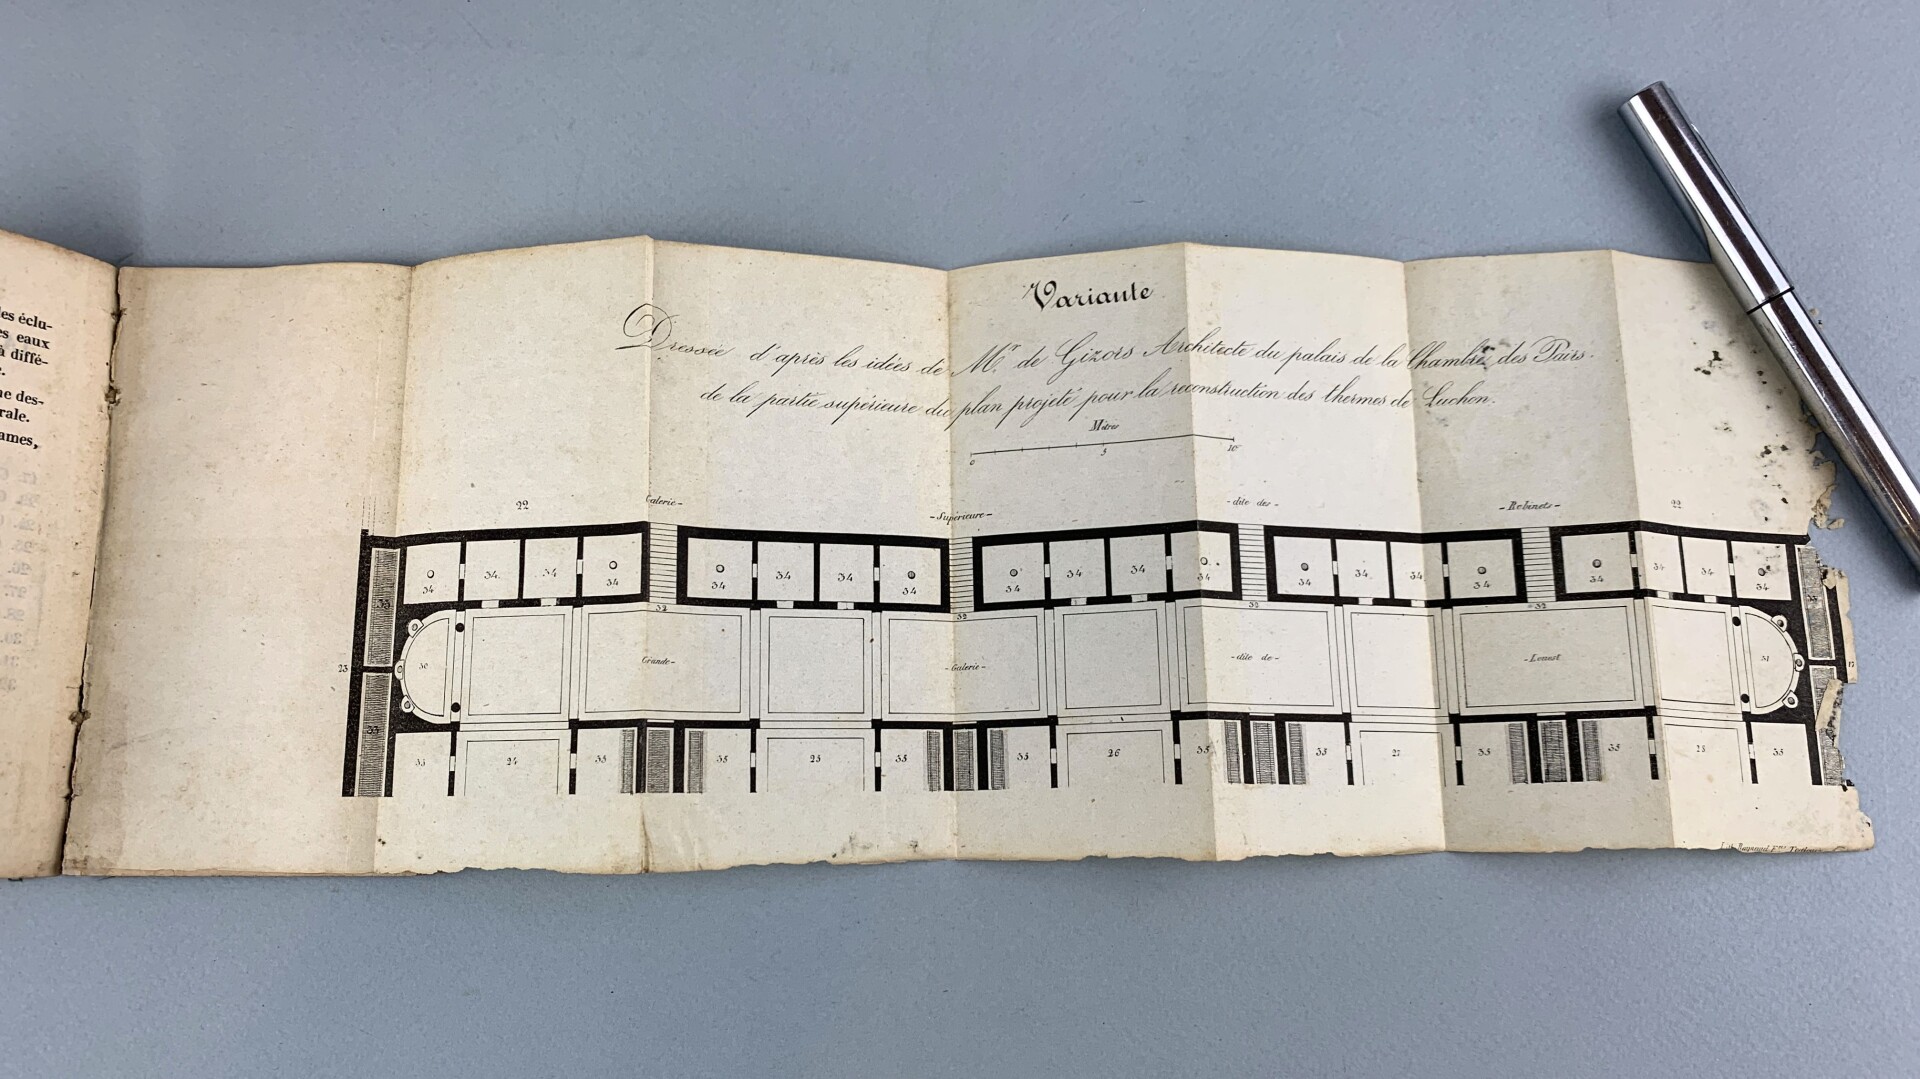 les éclu-
es eaux
à diffé-
ne des-
rale.
ames,
Variante
Dressée d'après les idées de Mr. de Gizors Architecte du palais de la Chambre des Pairs.
de la partie supérieure du plan projeté pour la reconstruction des thermes de Luchon.
Mètres
0 5 10
22 Galerie - - Supérieure - - dite des - - Robinets - 22
34 34 34 34 34 34 34 34 34 34 34 34 34 34 34 34 34 34 34 34
33 32 32 32 32
23 30 Grande - - Galerie - - dite de - - Louest 31
33
33 24 35 35 25 35 35 26 35 35 27 35 35 28 35
Lith. Raynaud Fres